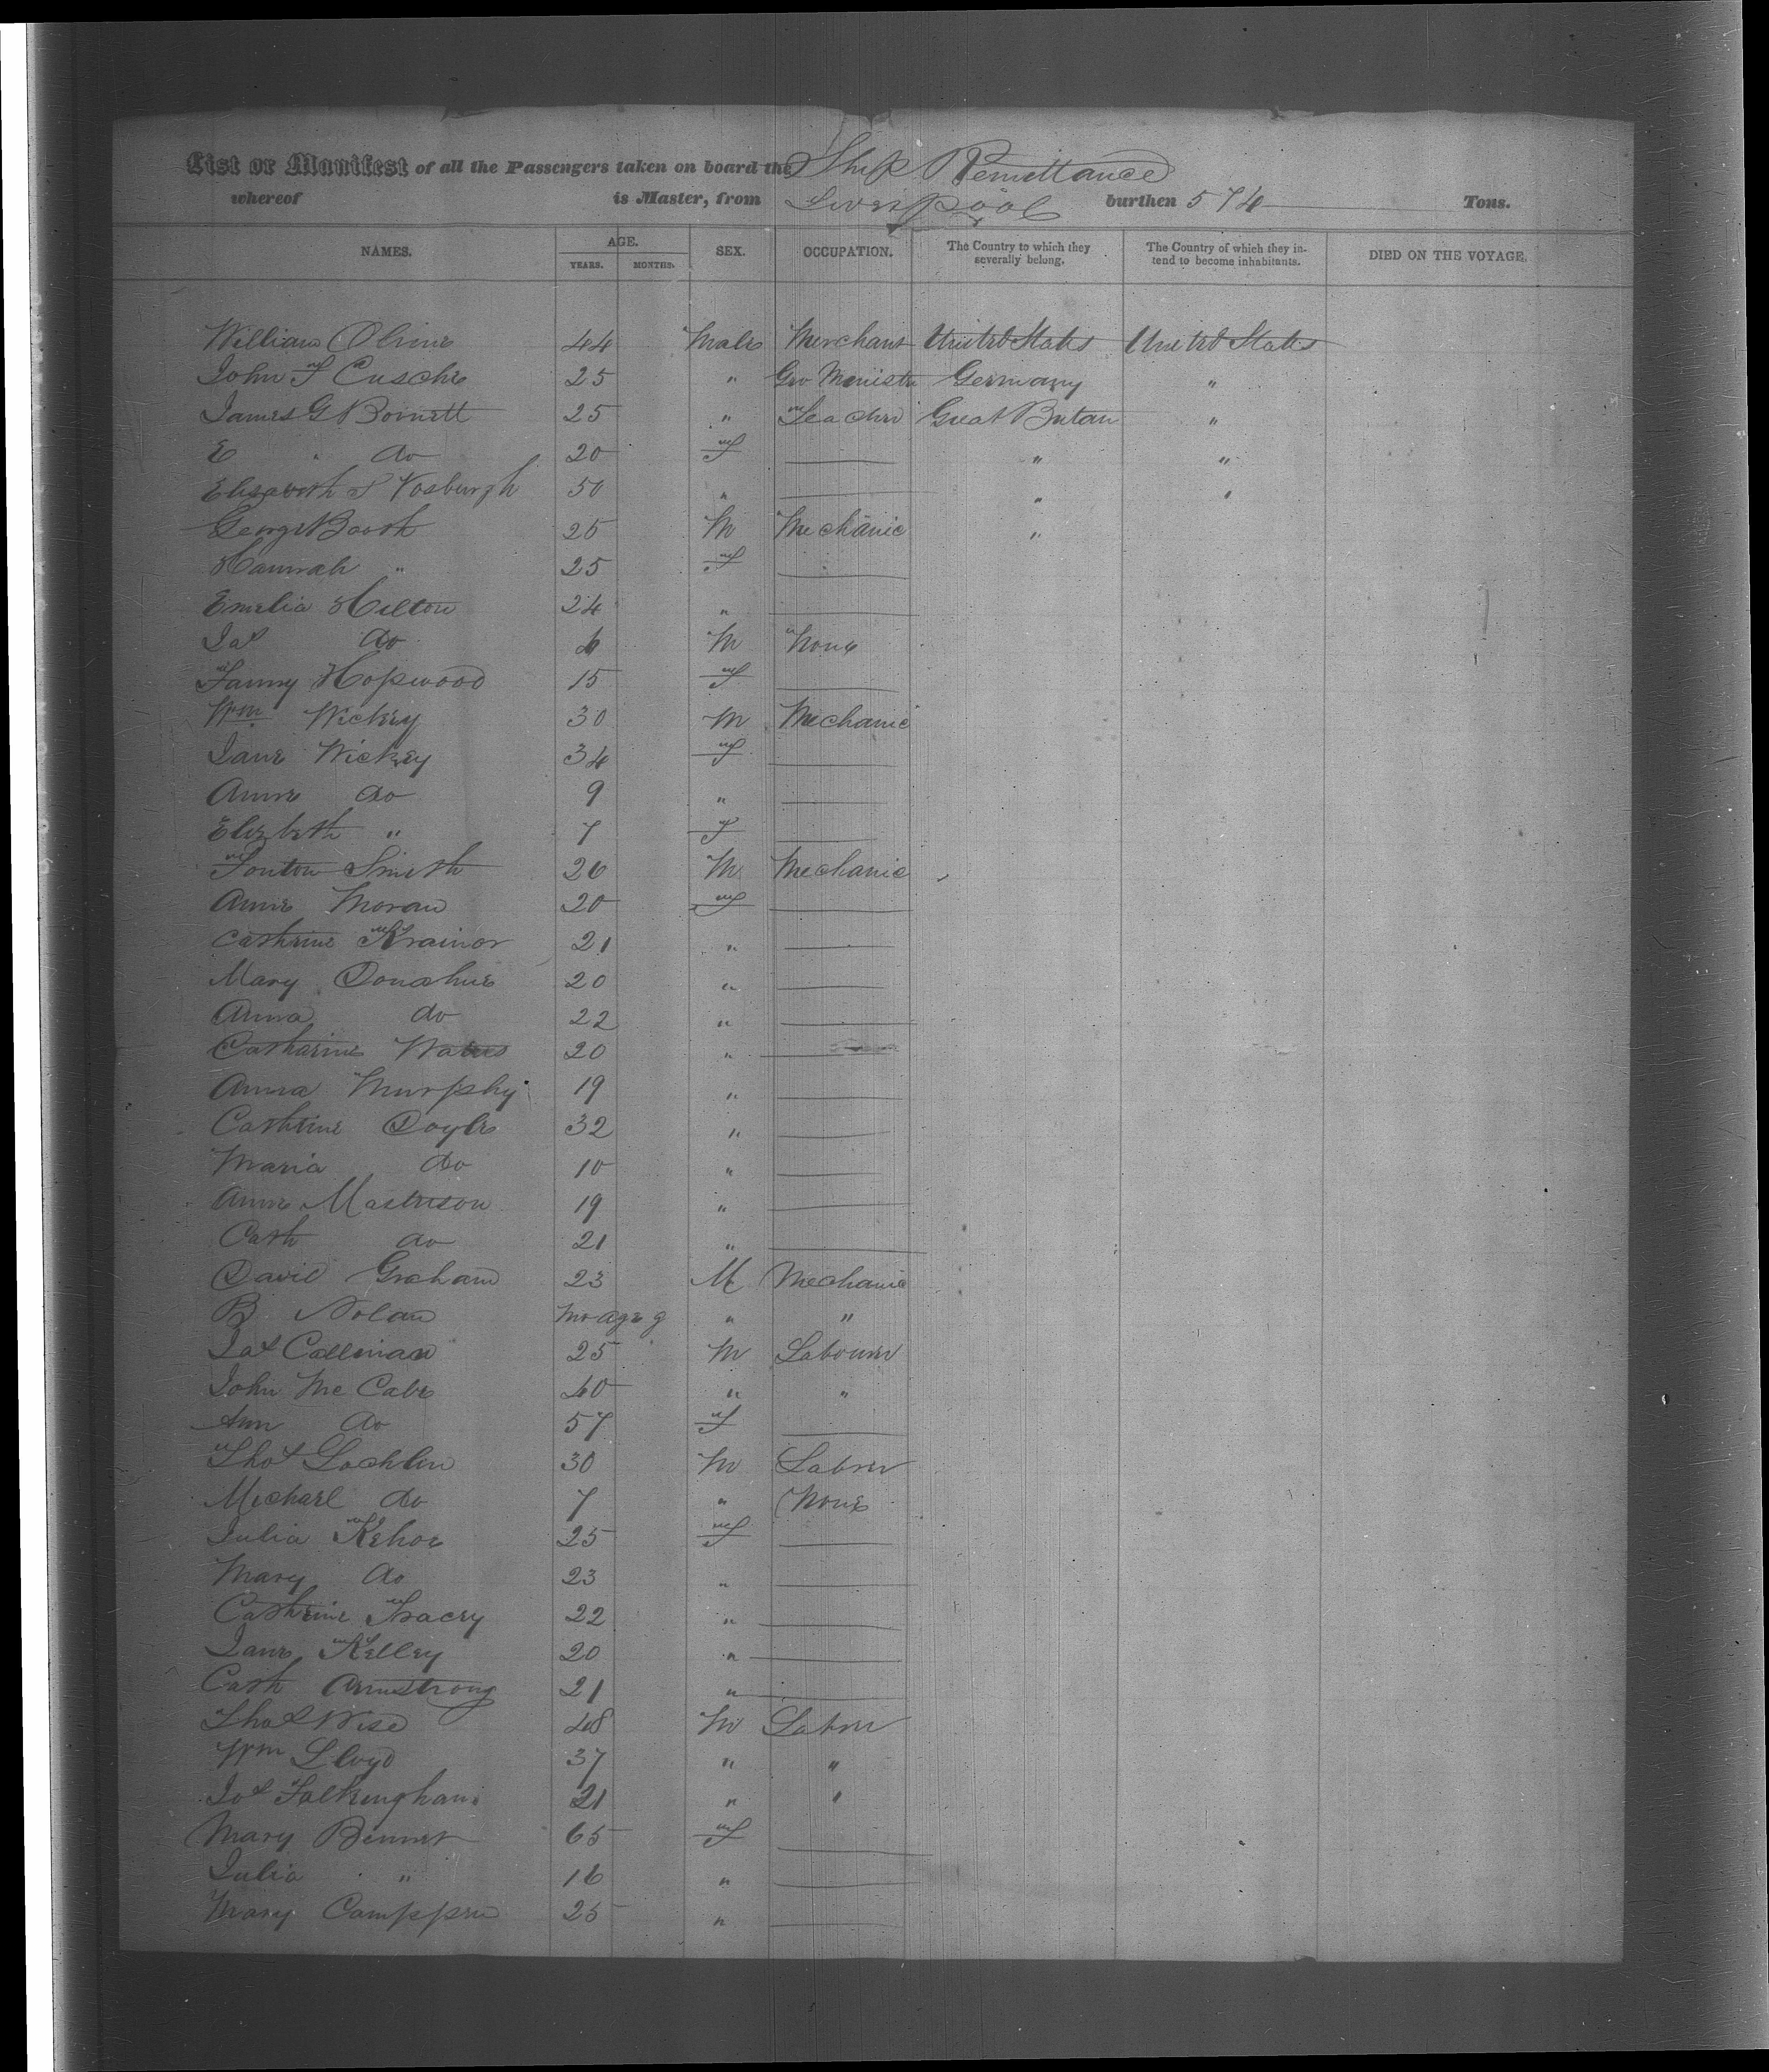 List or Manifest of all the Passengers taken on board the Ship Remittance
whereof is Master, from Liverpool burthen 574 Tons.
NAMES. AGE. YEARS. MONTHS. SEX. OCCUPATION. The Country to which they severally belong. The Country of which they intend to become inhabitants. DIED ON THE VOYAGE.
William 44 Male Merchant United States United States
John F Cusche 25 " Germany "
James G Bonnett 25 " Teacher Great Britain "
E " do 20 F " "
Elisabeth S Vosburgh 50 " " "
George Booth 25 M Mechanic "
Hannah " 25 F
Emelia Hilton 24 "
Jas do 6 M None
Fanny Hopwood 15 F
Wm Wickey 30 M Mechanic
Jane Wickey 34 F
Anne do 9 "
Elizbeth " 7 F
Smith 26 M Mechanic
Anne Moran 20 F
Cathrine Krainor 21 "
Mary Donahue 20 "
Anna do 22 "
Catharine 20 "
Anna Murphy 19 "
Cathrine Doyle 32 "
Maria do 10 "
Anne Mastrison 19 "
Cath do 21 "
David Graham 23 M Mechanic
B Nolan " "
Jas Callinan 25 M Labourer
John McCabe 40 " "
Ann do 57 F
Thos Lochlin 30 M Labrer
Michael do 7 " None
Julia Kehoe 25 F
Mary do 23 "
Cathrine Tracey 22 "
Jane Kelley 20 "
Cath Armstrong 21 "
Thos Wise 48 M Labrer
Wm Lloyd 37 " "
Jos Falkingham 21 " "
Mary Benner 65 F
Julia " 16 "
Mary 25 "